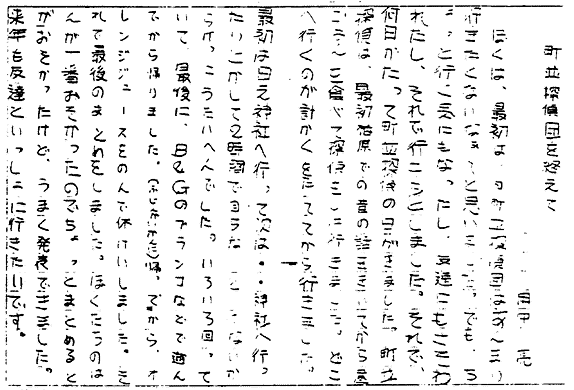 町並探偵団を終えて
田中
ぼくは、最初は、町並探偵団はあまり
行きたくないなぁと思いました。でも、ち
ょっと行く気にもなったし、友達にもことわ
れたし、それで行くことにしました。それで、
何日かたって町並探偵の日がきました。町並
探偵は、最初 での昔の話をきいてから
を食べて探偵をしに行きました。どこ
へ行くのか計かくをたててから行きました。
最初は日え神社へ行って次は 神社へ行っ
たりとかして2時間で回らな いか
らけっこうたいへんでした。いろいろ回って
いて、最後に、B&Gのブランコなどで遊ん
でから帰りました。 帰ってから、オ
レンジジュースをのんで休けいしました。そ
れで最後のまとめをしました。ぼくたちのは
んが一番おそかったのでちょっとまとめると
がおそかったけど、うまく発表できました。
来年も友達といっしょに行きたいです。